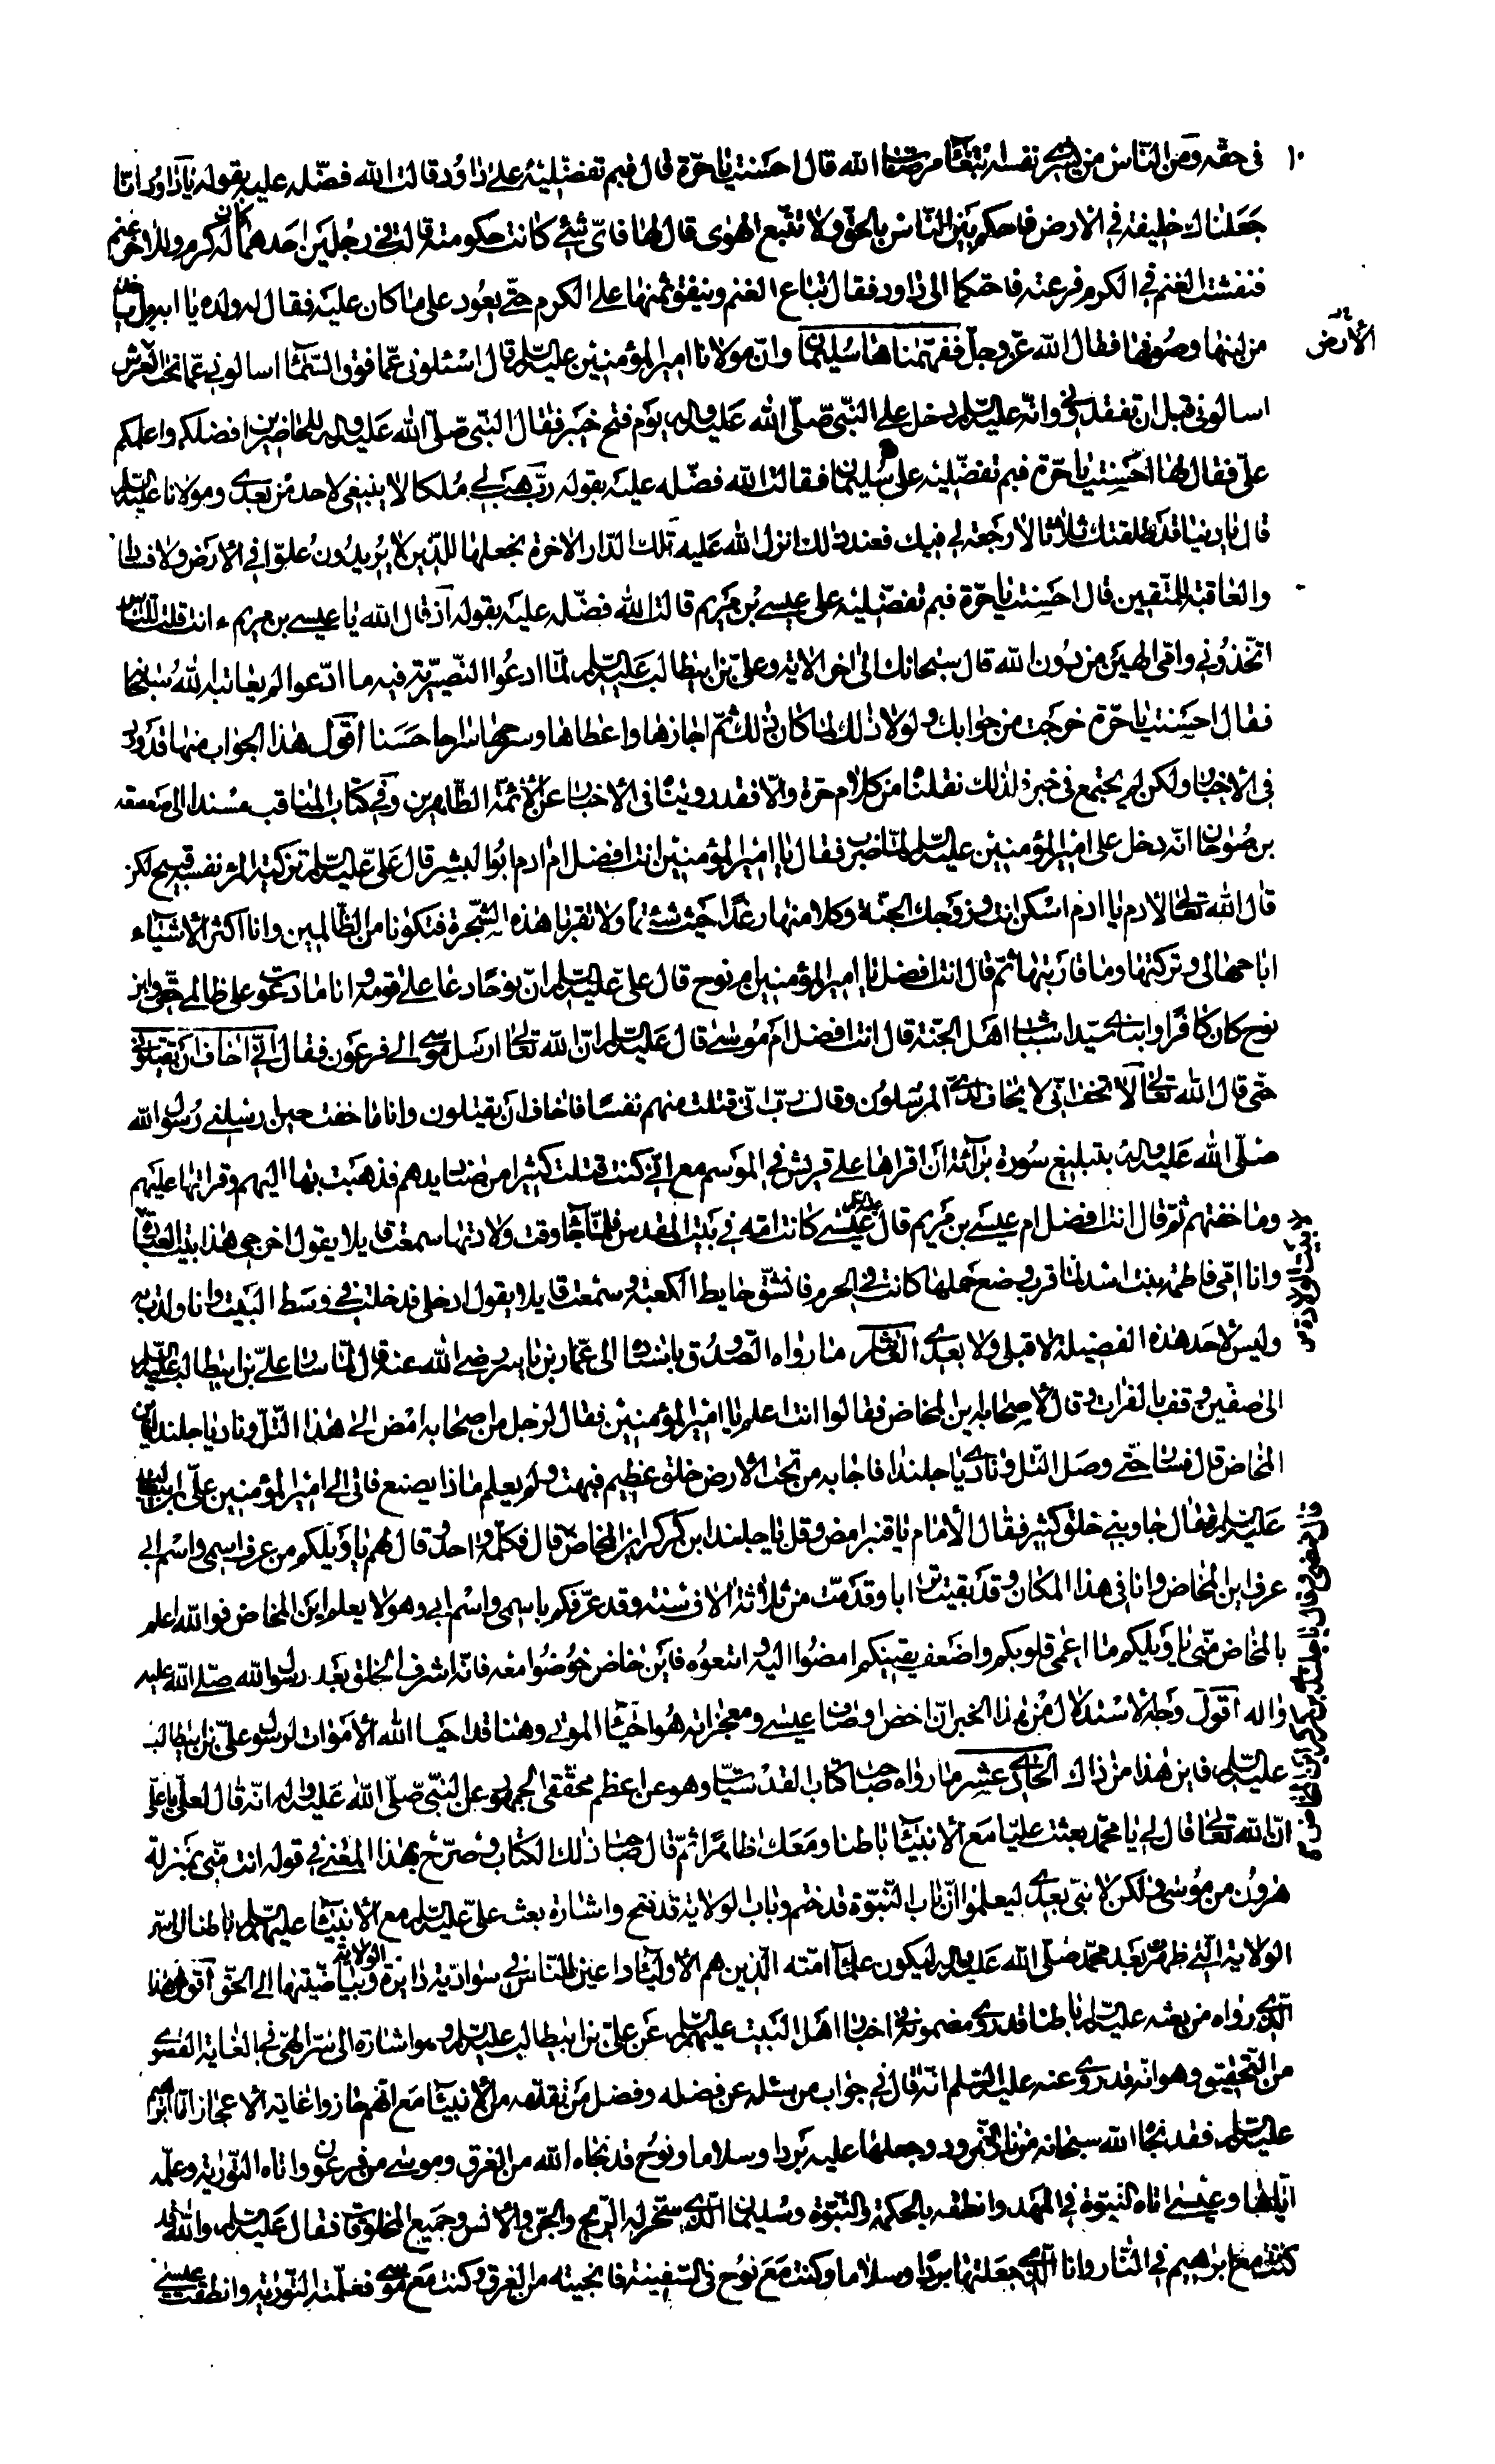 ١٠ فى حقه ومن الناس من يشرى نفسه ابتغاء مرضات الله قال احسنت يا حرة قال فبم تفضلينه على داود قالت الله فضله عليه بقوله يا داود انا
جعلناك خليفة فى الارض فاحكم بين الناس بالحق ولا تتبع الهوى قال لها فاى شئ كانت حكومته قالت فى رجلين احدهما كان له كرم وللاخر غنم
فنفشت الغنم فى الكرم فرعته فاحتكما الى داود فقال تباع الغنم وينفق ثمنها على الكرم حتى يعود على ما كان عليه فقال له ولده يا ابه بل يؤخذ
من لبنها وصوفها فقال الله عز وجل ففهمناها سليمان وان مولانا امير المؤمنين عليه السلم قال اسئلونى عما فوق السماء اسالونى عما تحت العرش
الأرض
اسالونى قبل ان تفقدونى وانه عليه السلم دخل على النبى صلى الله عليه واله يوم فتح خيبر فقال النبى صلى الله عليه واله للحاضرين افضلكم واعلمكم
على فقال لها احسنت يا حرة فبم تفضلينه على سليمان فقالت الله فضله عليه بقوله رب هب لى ملكا لا ينبغى لاحد من بعدى ومولانا عليه السلم
قال يا دنيا قد طلقتك ثلاثا لا رجعة لى فيك فعند ذلك انزل الله عليه تلك الدار الاخرة نجعلها للذين لا يريدون علوا فى الارض ولا فسادا
والعاقبة للمتقين قال احسنت يا حرة فبم تفضلينه على عيسى بن مريم قالت الله فضله عليه بقوله اذ قال الله يا عيسى بن مريم ءانت قلت للناس
اتخذونى وامى الهين من دون الله قال سبحانك الى اخر الاية وعلى بن ابيطالب عليه السلم لما ادعوا النصيرية فيه ما ادعوا لم يعاتبه الله سبحانه
فقال احسنت يا حرة خرجت من جوابك ولولا ذلك لما كان ذلك ثم اجازها واعطاها وسرحها سراحا حسنا اقول هذا الجواب منها قد ورد
فى الاخبار ولكن لم يجتمع فى خبر فلذلك نقلناه من كلام حرة والا فقد روينا فى الاخبار عن الائمة الطاهرين وفى كتاب المناقب مسندا الى صعصعة
بن صوحان انه دخل على امير المؤمنين عليه السلم لما ضرب فقال يا امير المؤمنين انت افضل ام ادم ابو البشر قال على عليه السلم تزكية المرء نفسه قبيح لكن
قال الله تعالى لادم يا ادم اسكن انت وزوجك الجنة وكلا منها رغدا حيث شئتما ولا تقربا هذه الشجرة فتكونا من الظالمين وانا اكثر الاشياء
اباحها لى وتركتها وما قاربتها ثم قال انت افضل يا امير المؤمنين ام نوح قال على عليه السلم ان نوحا دعا على قومه وانا ما دعوت على ظالمى حقى وابن
نوح كان كافرا وابناى سيدا شباب اهل الجنة قال انت افضل ام موسى قال عليه السلم ان الله تعالى ارسل موسى الى فرعون فقال انى اخاف ان يقتلون
حتى قال الله تعالى لا تخف انى لا يخاف لدى المرسلون وقال رب انى قتلت منهم نفسا فاخاف ان يقتلون وانا ما خفت حين ارسلنى رسول الله
صلى الله عليه واله بتبليغ سورة برائة ان اقرءها على قريش فى الموسم مع انى كنت قتلت كثيرا من صناديدهم فذهبت بها اليهم وقراتها عليهم
وما خفتهم ثم قال انت افضل ام عيسى بن مريم قال عيسى كانت امه فى بيت المقدس فلما جاء وقت ولادتها سمعت قايلا يقول اخرجى هذا بيت العبادة
لا بيت الولادة
وانا امى فاطمة بنت اسد لما قرب وضع حملها كانت فى الحرم فانشق حايط الكعبة وسمعت قايلا يقول ادخلى فدخلت فى وسط البيت وانا ولدت به
وليس لاحد هذه الفضيلة لا قبلى ولا بعدى العاشر ما رواه الصدوق باسناده الى عمار بن ياسر رضى الله عنه قال لما سار على بن ابيطالب عليه السلم
الى صفين وقف بالفرات وقال لاصحابه اين المخاض فقالوا انت اعلم يا امير المؤمنين فقال لرجل من اصحابه امض الى هذا التل وناد يا جلندا اين
المخاض قال فسار حتى وصل التل ونادى يا جلندا فاجابه من تحت الارض خلق عظيم فبهت ولم يعلم ماذا يصنع فاتى الى امير المؤمنين على بن ابيطالب
عليه السلم فقال جاوبنى خلق كثير فقال الامام يا قنبر امض وقل يا جلندا بن كركر اين المخاض قال فكلمه واحد وقال لهم يا ويلكم من عرف اسمى واسم ابى
عرف اين المخاض وانا فى هذا المكان وقد بقيت ترابا وقد مت من ثلاثة الاف سنة وقد عرفكم باسمى واسم ابى وهو لا يعلم اين المخاض فوالله اعلم
بالمخاض منى يا ويلكم ما اعمى قلوبكم واضعف يقينكم امضوا اليه واتبعوه فاين خاض خوضوا معه فانه اشرف الخلق بعد رسول الله صلى الله عليه
واله اقول وجه الاستدلال من هذا الخبر ان اخص اوصاف عيسى ومعجزاته هو احياء الموتى وهنا قد احيا الله الاموات لرسول على بن ابيطالب
عليه السلم فاين هذا من ذاك الحادى عشر ما رواه صاحب كتاب القدسيات وهو عن اعظم محققى الجمهور عن النبى صلى الله عليه واله انه قال لعلى يا على
ان الله تعالى قال لى يا محمد بعثت عليا مع الانبياء باطنا ومعك ظاهرا ثم قال صاحب ذلك الكتاب وصرح بهذا المعنى فى قوله انت منى بمنزلة
هرون من موسى ولكن لا نبى بعدى ليعلموا ان باب النبوة قد ختم وباب الولاية قد فتح واشارة بعث على عليه السلم مع الانبياء عليهم السلم باطنا الى سر
الولاية التى ظهرت بعد محمد صلى الله عليه واله ليكون علماء امته الذين هم الاولياء داعين للناس فى سوادية دايرة وبياضيتها الولاية الى الحق اقول هذا
الذى رواه من بعثه عليه السلم باطنا قد روى مضمونه فى اخبار اهل البيت عليهم السلم عن على بن ابيطالب عليه السلم وهو اشارة الى سر الهى فى الغاية القصوى
من التحقيق وهو انه قد روى عنه عليه السلم انه قال فى جواب من سئله عن فضله وفضل من تقدمه من الانبياء مع انهم حازوا غاية الاعجاز اما ابراهيم
عليه السلم فقد نجاه الله سبحانه من نار النمرود وجعلها عليه بردا وسلاما ونوح قد نجاه الله من الغرق وموسى من فرعون واتاه التورية وعلمه
اياها وعيسى اتاه النبوة فى المهد وانطقه بالحكمة والنبوة وسليمان الذى سخر له الريح والجن والانس وجميع المخلوقات فقال عليه السلم والله قد
كنت مع ابرهيم فى النار وانا الذى جعلتها بردا وسلاما وكنت مع نوح فى السفينة فانجيته من الغرق وكنت مع موسى فعلمته التورية وانطقت عيسى